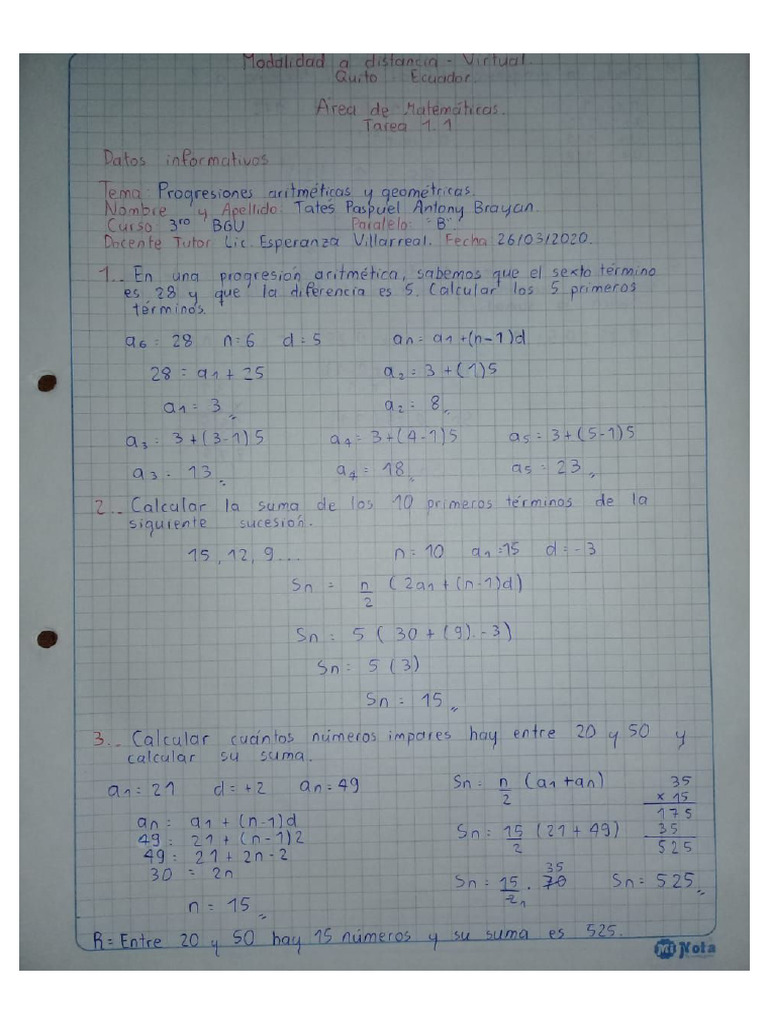 Modalidad a distancia - Virtual.
Quito Ecuador.
Área de Matemáticas.
Tarea 1.1
Datos informativos
Tema: Progresiones aritméticas y geométricas.
Nombre y Apellido: Tates Paspuel Antony Brayan.
Curso: 3ro BGU Paralelo: "B"
Docente Tutor Lic. Esperanza Villarreal. Fecha 26/03/2020.
1.- En una progresión aritmética, sabemos que el sexto término
es 28 y que la diferencia es 5. Calcular los 5 primeros
términos.
a6 = 28 n=6 d=5 an = a1+(n-1)d
28 = a1 + 25 a2 = 3 + (1)5
a1 = 3 a2 = 8
a3 = 3+(3-1)5 a4 = 3+(4-1)5 a5 = 3+(5-1)5
a3 = 13 a4 = 18 a5 = 23
2.- Calcular la suma de los 10 primeros términos de la
siguiente sucesión.
15, 12, 9... n=10 a1=15 d=-3
Sn = n/2 (2a1+(n-1)d)
Sn = 5 (30+(9).-3)
Sn = 5 (3)
Sn = 15
3.- Calcular cuántos números impares hay entre 20 y 50 y
calcular su suma.
a1 = 21 d = +2 an = 49 Sn = n/2 (a1+an) 35
x 15
an = a1 + (n-1)d 175
49 = 21 + (n-1)2 Sn = 15/2 (21+49) 35
49 = 21 + 2n-2 525
30 = 2n Sn = 15/2 . 70 35 1 Sn = 525
n = 15
R= Entre 20 y 50 hay 15 números y su suma es 525.
Mi Nota